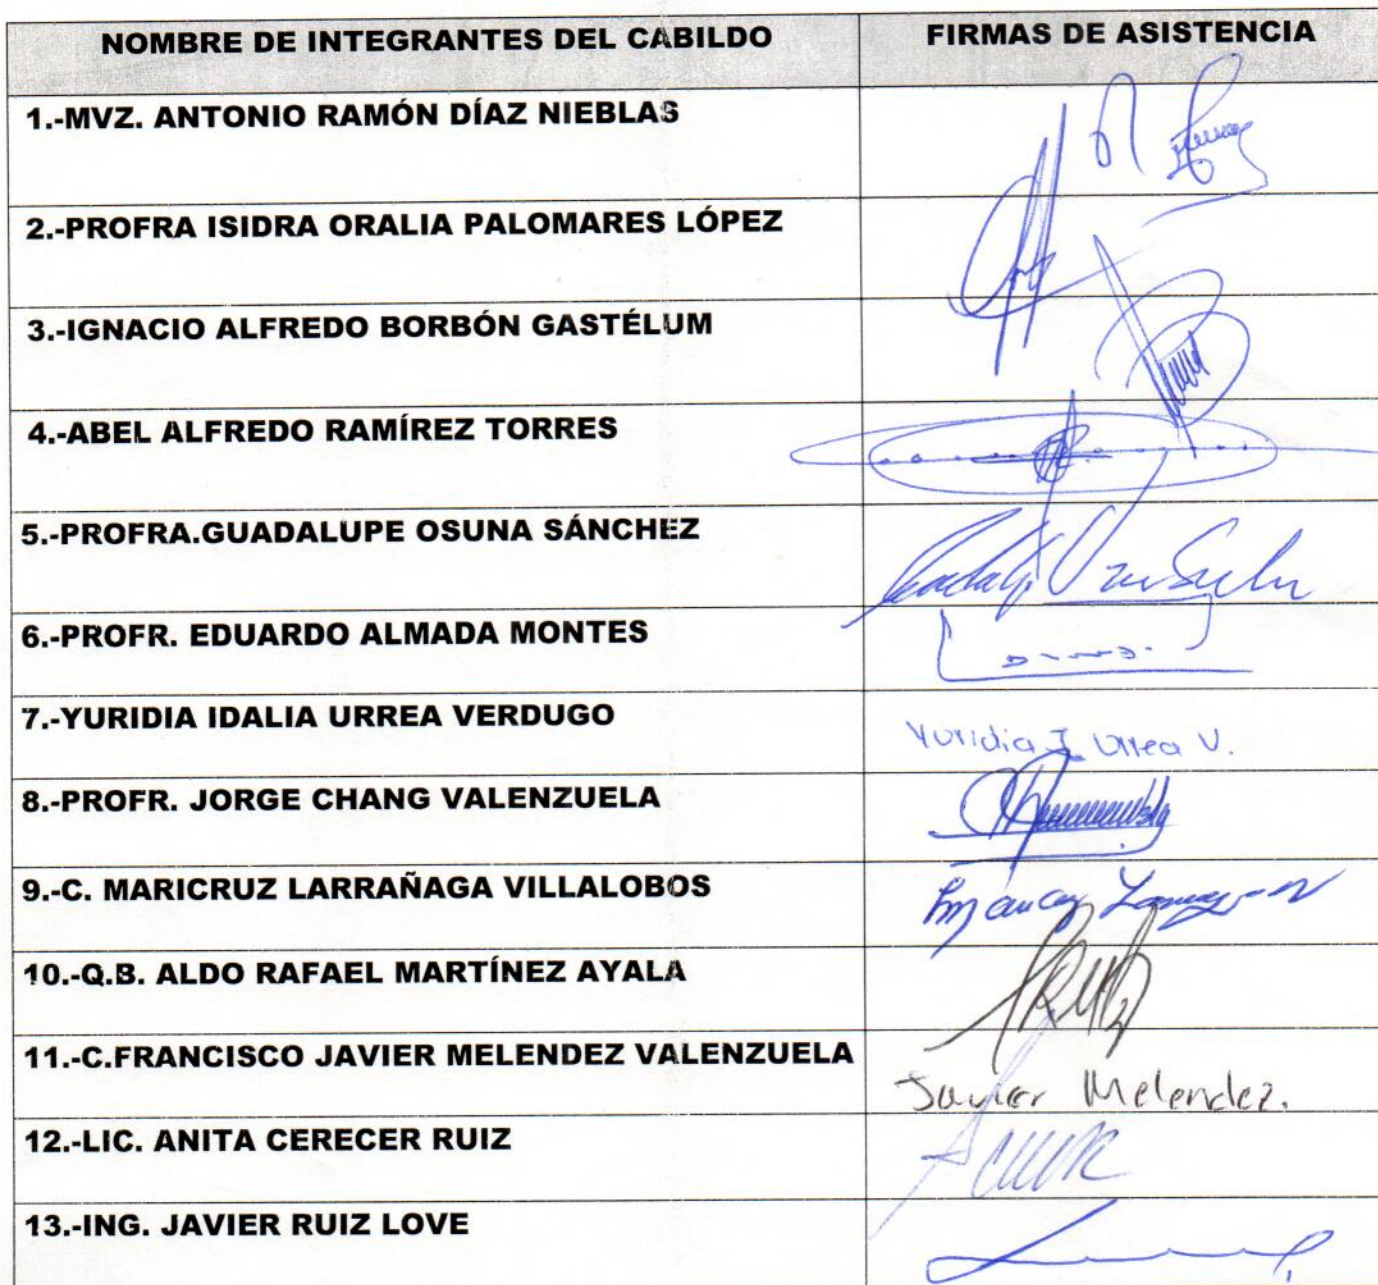 NOMBRE DE INTEGRANTES DEL CABILDO FIRMAS DE ASISTENCIA
1.-MVZ. ANTONIO RAMÓN DÍAZ NIEBLAS
2.-PROFRA ISIDRA ORALIA PALOMARES LÓPEZ
3.-IGNACIO ALFREDO BORBÓN GASTÉLUM
4.-ABEL ALFREDO RAMÍREZ TORRES
5.-PROFRA.GUADALUPE OSUNA SÁNCHEZ
6.-PROFR. EDUARDO ALMADA MONTES
7.-YURIDIA IDALIA URREA VERDUGO Yuridia I Urrea V.
8.-PROFR. JORGE CHANG VALENZUELA
9.-C. MARICRUZ LARRAÑAGA VILLALOBOS
10.-Q.B. ALDO RAFAEL MARTÍNEZ AYALA
11.-C.FRANCISCO JAVIER MELENDEZ VALENZUELA Javier Melendez.
12.-LIC. ANITA CERECER RUIZ
13.-ING. JAVIER RUIZ LOVE